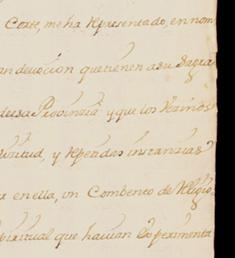 Corte, me ha Representado, en nom
an devocion que tienen a su Sagra
de esa Provincia y que los Vecinos
Virtud, y Repetidas instancias
en ella, un Combento de Religio
piritual que havian Experimenta